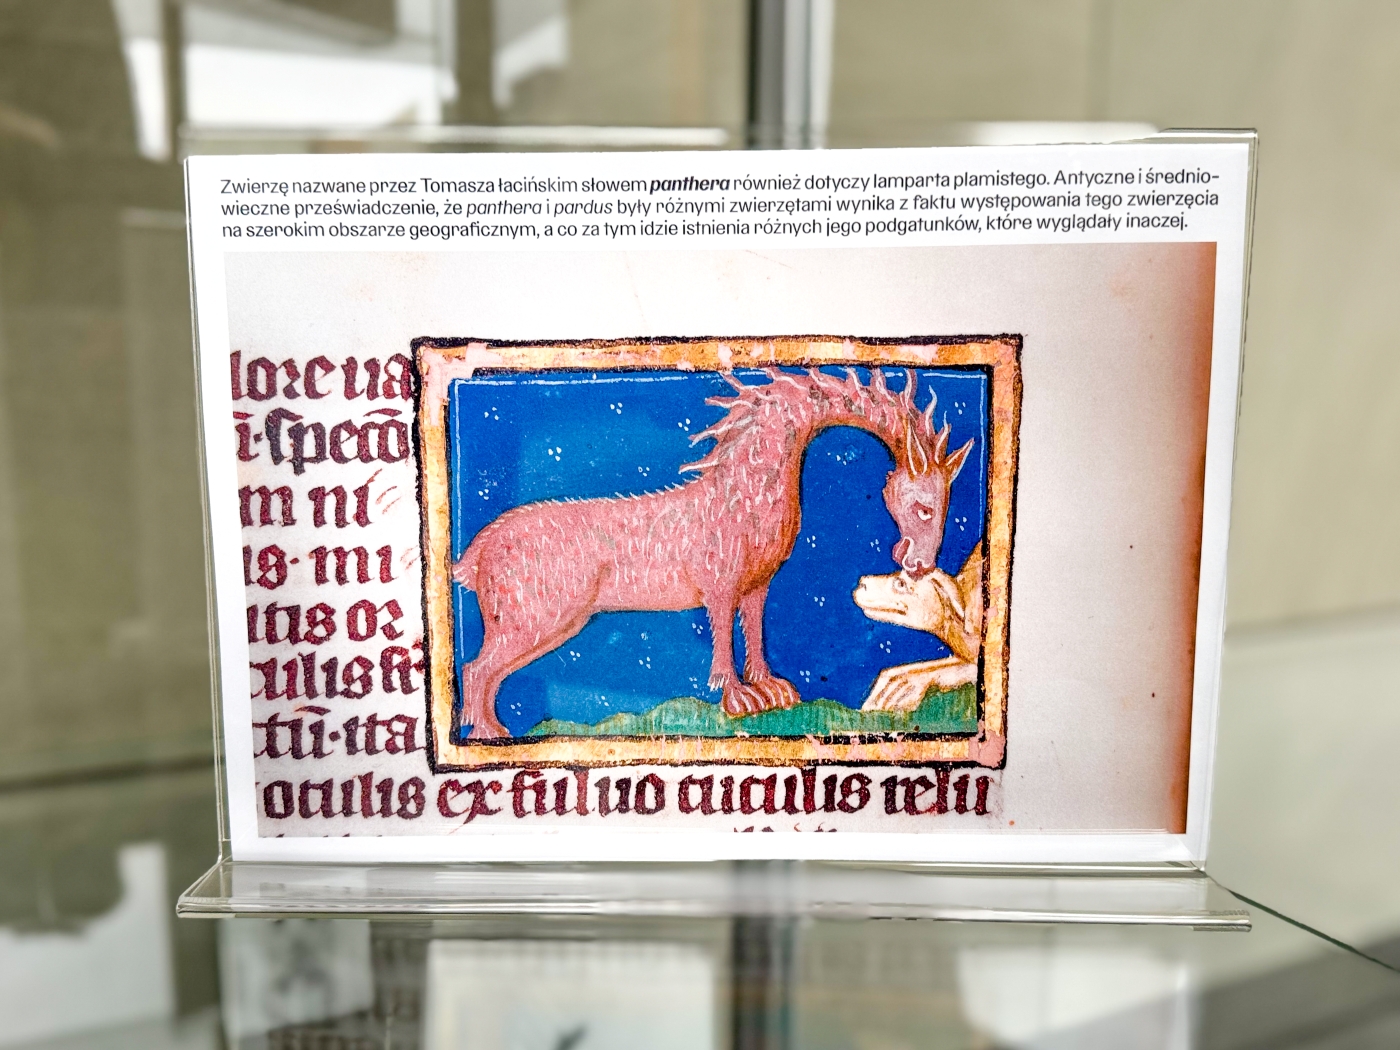 Zwierzę nazwane przez Tomasza łacińskim słowem panthera również dotyczy lamparta plamistego. Antyczne i średnio-
wieczne przeświadczenie, że panthera i pardus były różnymi zwierzętami wynika z faktu występowania tego zwierzęcia
na szerokim obszarze geograficznym, a co za tym idzie istnienia różnych jego podgatunków, które wyglądały inaczej.
m ni
is· mi
oculis ex fuluo